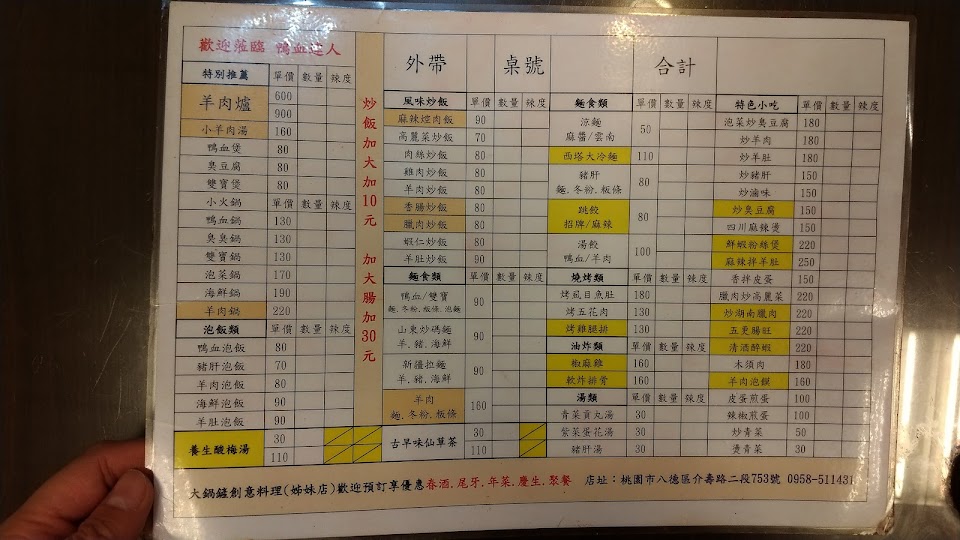 歡迎蒞臨 鴨血達人
特別推薦 單價 數量 辣度
羊肉爐 600
900
小羊肉湯 160
鴨血煲 80
臭豆腐 80
雙寶煲 80
小火鍋 單價 數量 辣度
鴨血鍋 130
臭臭鍋 130
雙寶鍋 130
泡菜鍋 170
海鮮鍋 190
羊肉鍋 220
泡飯類 單價 數量 辣度
鴨血泡飯 80
豬肝泡飯 70
羊肉泡飯 80
海鮮泡飯 90
羊肚泡飯 90
養生酸梅湯 30
110
炒飯加大加10元 加大腸加30元
外帶 桌號 合計
風味炒飯 單價 數量 辣度
麻辣焢肉飯 90
高麗菜炒飯 70
肉絲炒飯 80
雞肉炒飯 80
羊肉炒飯 80
香腸炒飯 80
臘肉炒飯 80
蝦仁炒飯 80
羊肚炒飯 90
麵食類 單價 數量 辣度
鴨血/雙寶 90
麵.冬粉.板條.泡麵
山東炒碼麵 90
羊.豬.海鮮
新疆拉麵 90
羊.豬.海鮮
羊肉 160
麵.冬粉.板條
古早味仙草茶 30
110
麵食類 單價 數量 辣度
涼麵 50
麻醬/雲南
西塔大冷麵 110
豬肝 80
麵.冬粉.板條
跳餃 80
招牌/麻辣
湯餃 100
鴨血/羊肉
燒烤類 單價 數量 辣度
烤虱目魚肚 180
烤五花肉 130
烤雞腿排 130
油炸類 單價 數量 辣度
椒麻雞 160
軟炸排骨 160
湯類 單價 數量 辣度
青菜貢丸湯 30
紫菜蛋花湯 30
豬肝湯 30
特色小吃 單價 數量 辣度
泡菜炒臭豆腐 180
炒羊肉 180
炒羊肚 180
炒豬肝 150
炒滷味 150
炒臭豆腐 150
四川麻辣燙 150
鮮蝦粉絲煲 220
麻辣拌羊肚 250
香拌皮蛋 150
臘肉炒高麗菜 150
炒湖南臘肉 220
五更腸旺 220
清酒醉蝦 220
木須肉 180
羊肉泡饃 160
皮蛋煎蛋 100
辣椒煎蛋 100
炒青菜 50
燙青菜 30
大鍋鏟創意料理(姊妹店)歡迎預訂享優惠春酒.尾牙.年菜.慶生.聚餐 店址：桃園市八德區介壽路二段753號 0958-511431